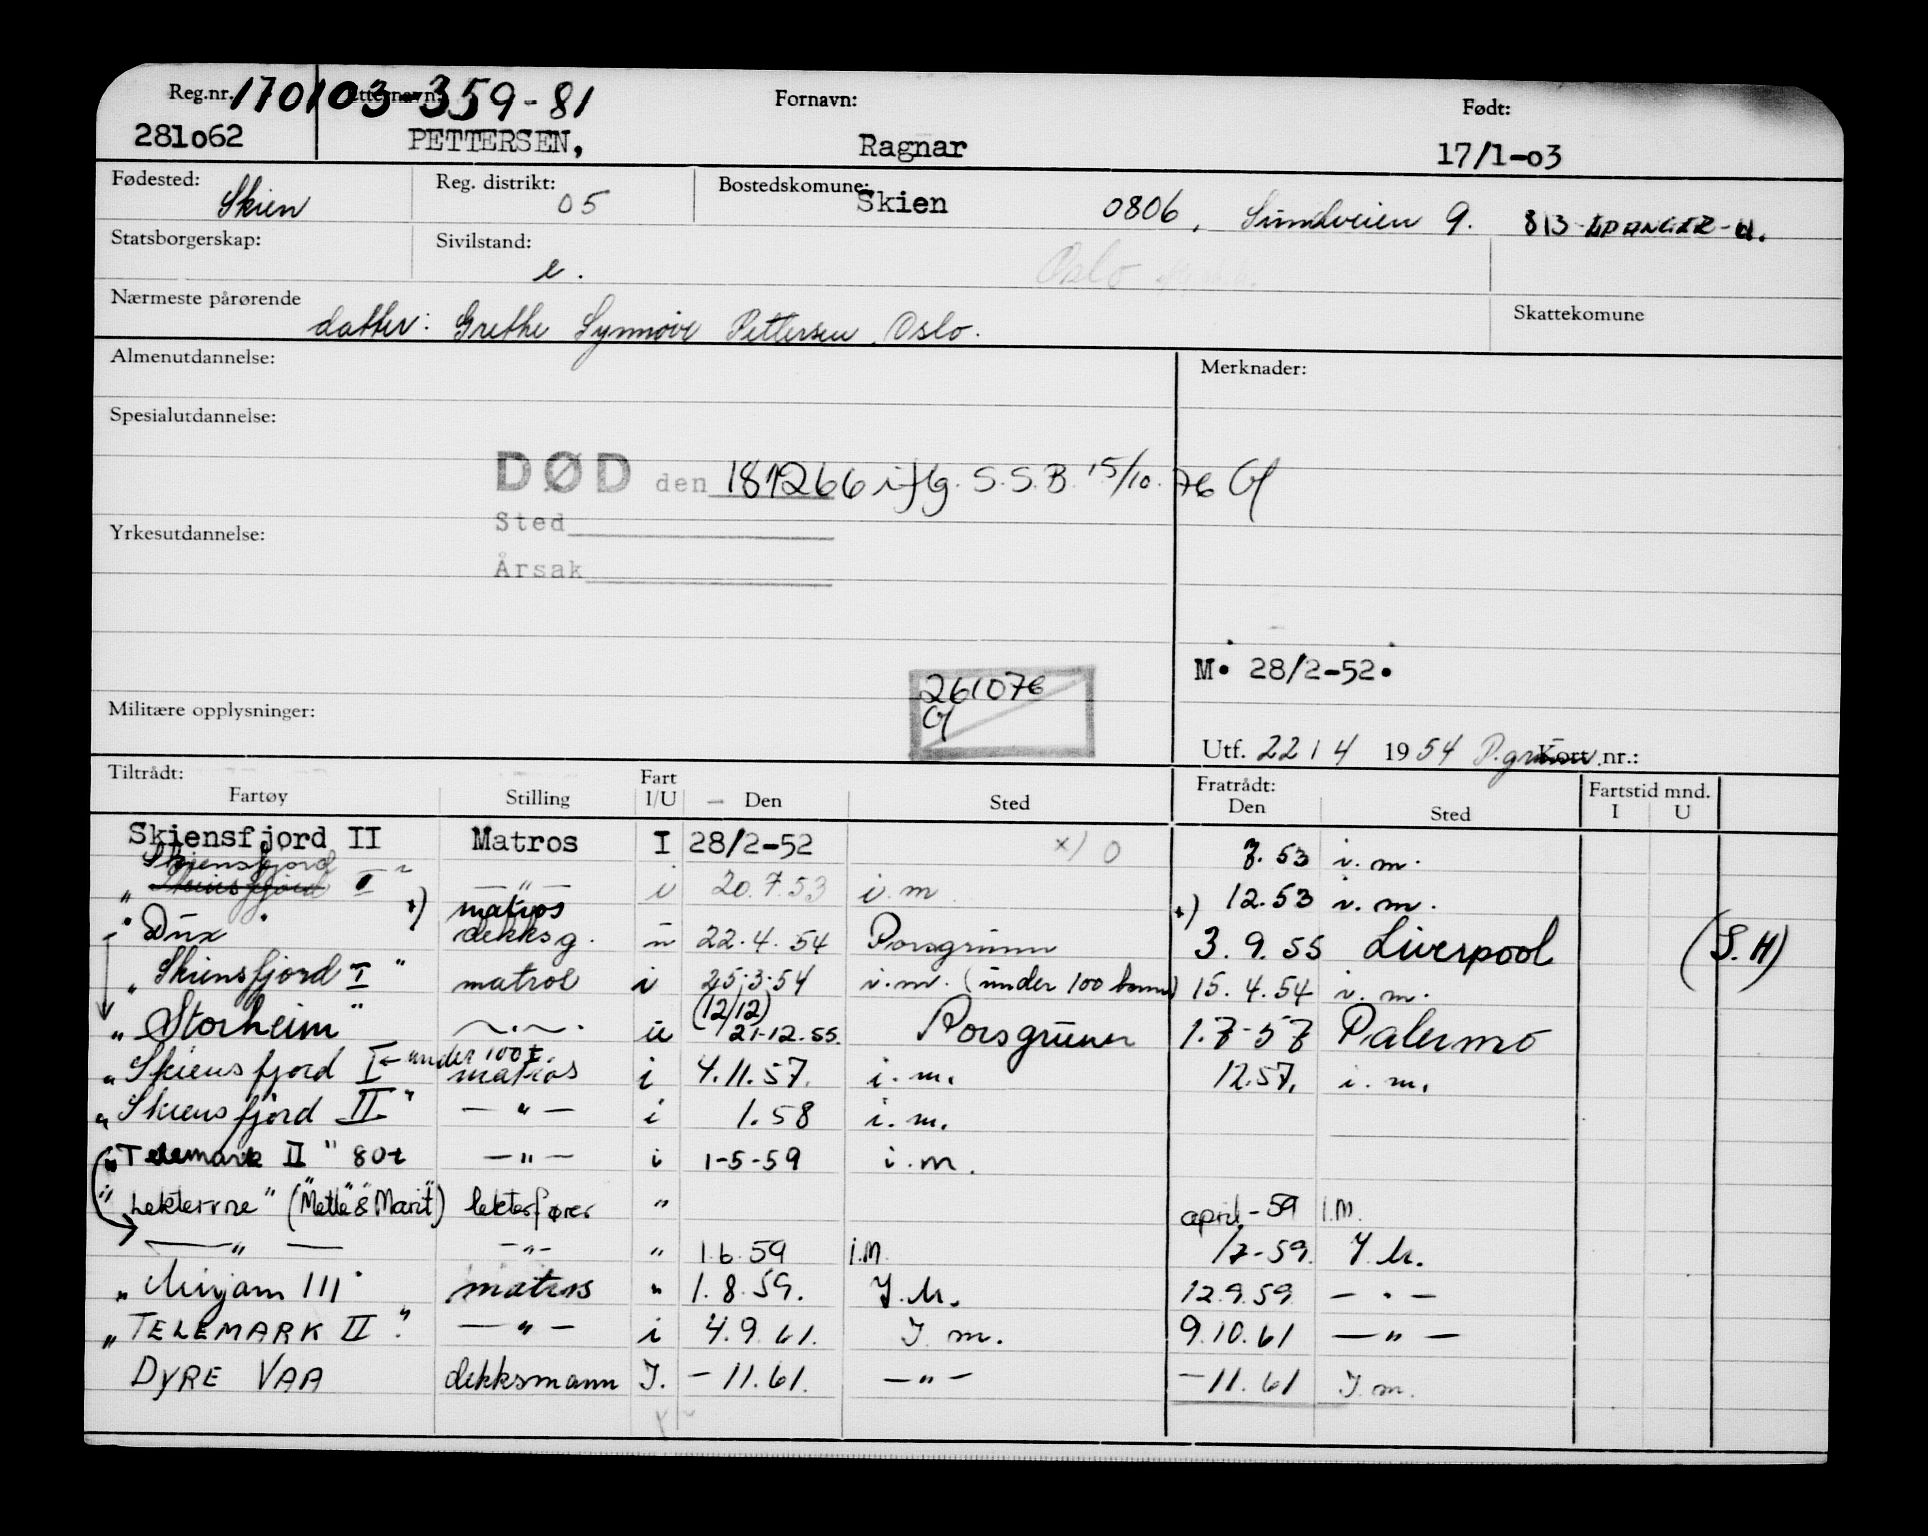 Reg.nr. 170103-359-81 Etternavn: Fornavn: Født:
281o62 PETTERSEN, Ragnar 17/1-o3
Fødested: Skien Reg. distrikt: 05 Bostedskomune: Skien 0806, Sundveien 9. 813
Statsborgerskap: Sivilstand: e. Oslo
Nærmeste pårørende datter: Grethe Synnøve Pettersen, Oslo. Skattekomune
Almenutdannelse: Merknader:
Spesialutdannelse:
DØD den 181266 iflg. S.S.B. 15/10.76
Sted
Yrkesutdannelse:
Årsak
M. 28/2-52.
261076
Militære opplysninger:
Utf. 22/4 1954 P.grunn Kort nr.:
Tiltrådt: Fart Fratrådt: Fartstid mnd.
Fartøy Stilling I/U Den Sted Den Sted I U
Skiensfjord II Matros I 28/2-52 x) 0 7.53 i.m.
Skiensfjord
" Skiensfjord I " — " — i 20.7.53 i.m 12.53 i.m.
matros
" Dux " x) dekksg. u 22.4.54 Porsgrunn x) 3.9.55 Liverpool (S.H)
" Skiensfjord I " matros i 25.3.54 i.m. (under 100 tonn) 15.4.54 i.m.
(12/12)
" Storheim " u 21-12.55. Porsgrunn 1.7-57 Palermo
" Skiensfjord I ← under 100 t. matros i 4.11.57. i.m. 12.57. i.m.
" Skiensfjord II " — " — i 1.58 i.m.
" Telemark II " 80t — " — i 1-5-59 i.m.
" Lekterne " ("Mette" & "Marit") lekterfører " april-59 I.M.
— " — — " — " 1.6.59 I.M. 1/7-59. I.M.
" Mirjam III " matros " 1.8.59. I.M. 12.9.59 — " —
" TELEMARK II " — " — i 4.9.61. I m. 9.10.61 — " —
DYRE VAA dekksmann I. -11.61. — " — -11.61 I.m.